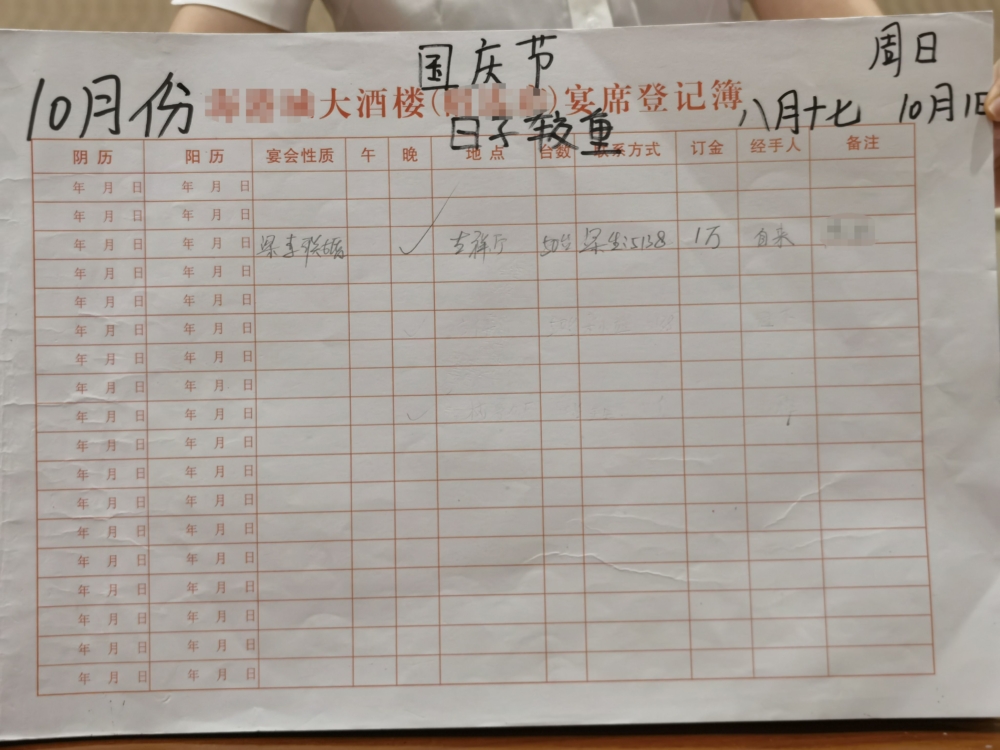 国庆节 周日
10月份 大酒楼( )宴席登记簿 八月十七 10月1日
日子较重
阴历 阳历 宴会性质 午 晚 地点 台数 联系方式 订金 经手人 备注
年 月 日 年 月 日
年 月 日 年 月 日
年 月 日 年 月 日 梁李联婚 ✓ 吉祥厅 50台 梁生:5138 1万 自来
年 月 日 年 月 日
年 月 日 年 月 日
年 月 日 年 月 日
年 月 日 年 月 日
年 月 日 年 月 日
年 月 日 年 月 日
年 月 日 年 月 日
年 月 日 年 月 日
年 月 日 年 月 日
年 月 日 年 月 日
年 月 日 年 月 日
年 月 日 年 月 日
年 月 日 年 月 日
年 月 日 年 月 日
年 月 日 年 月 日